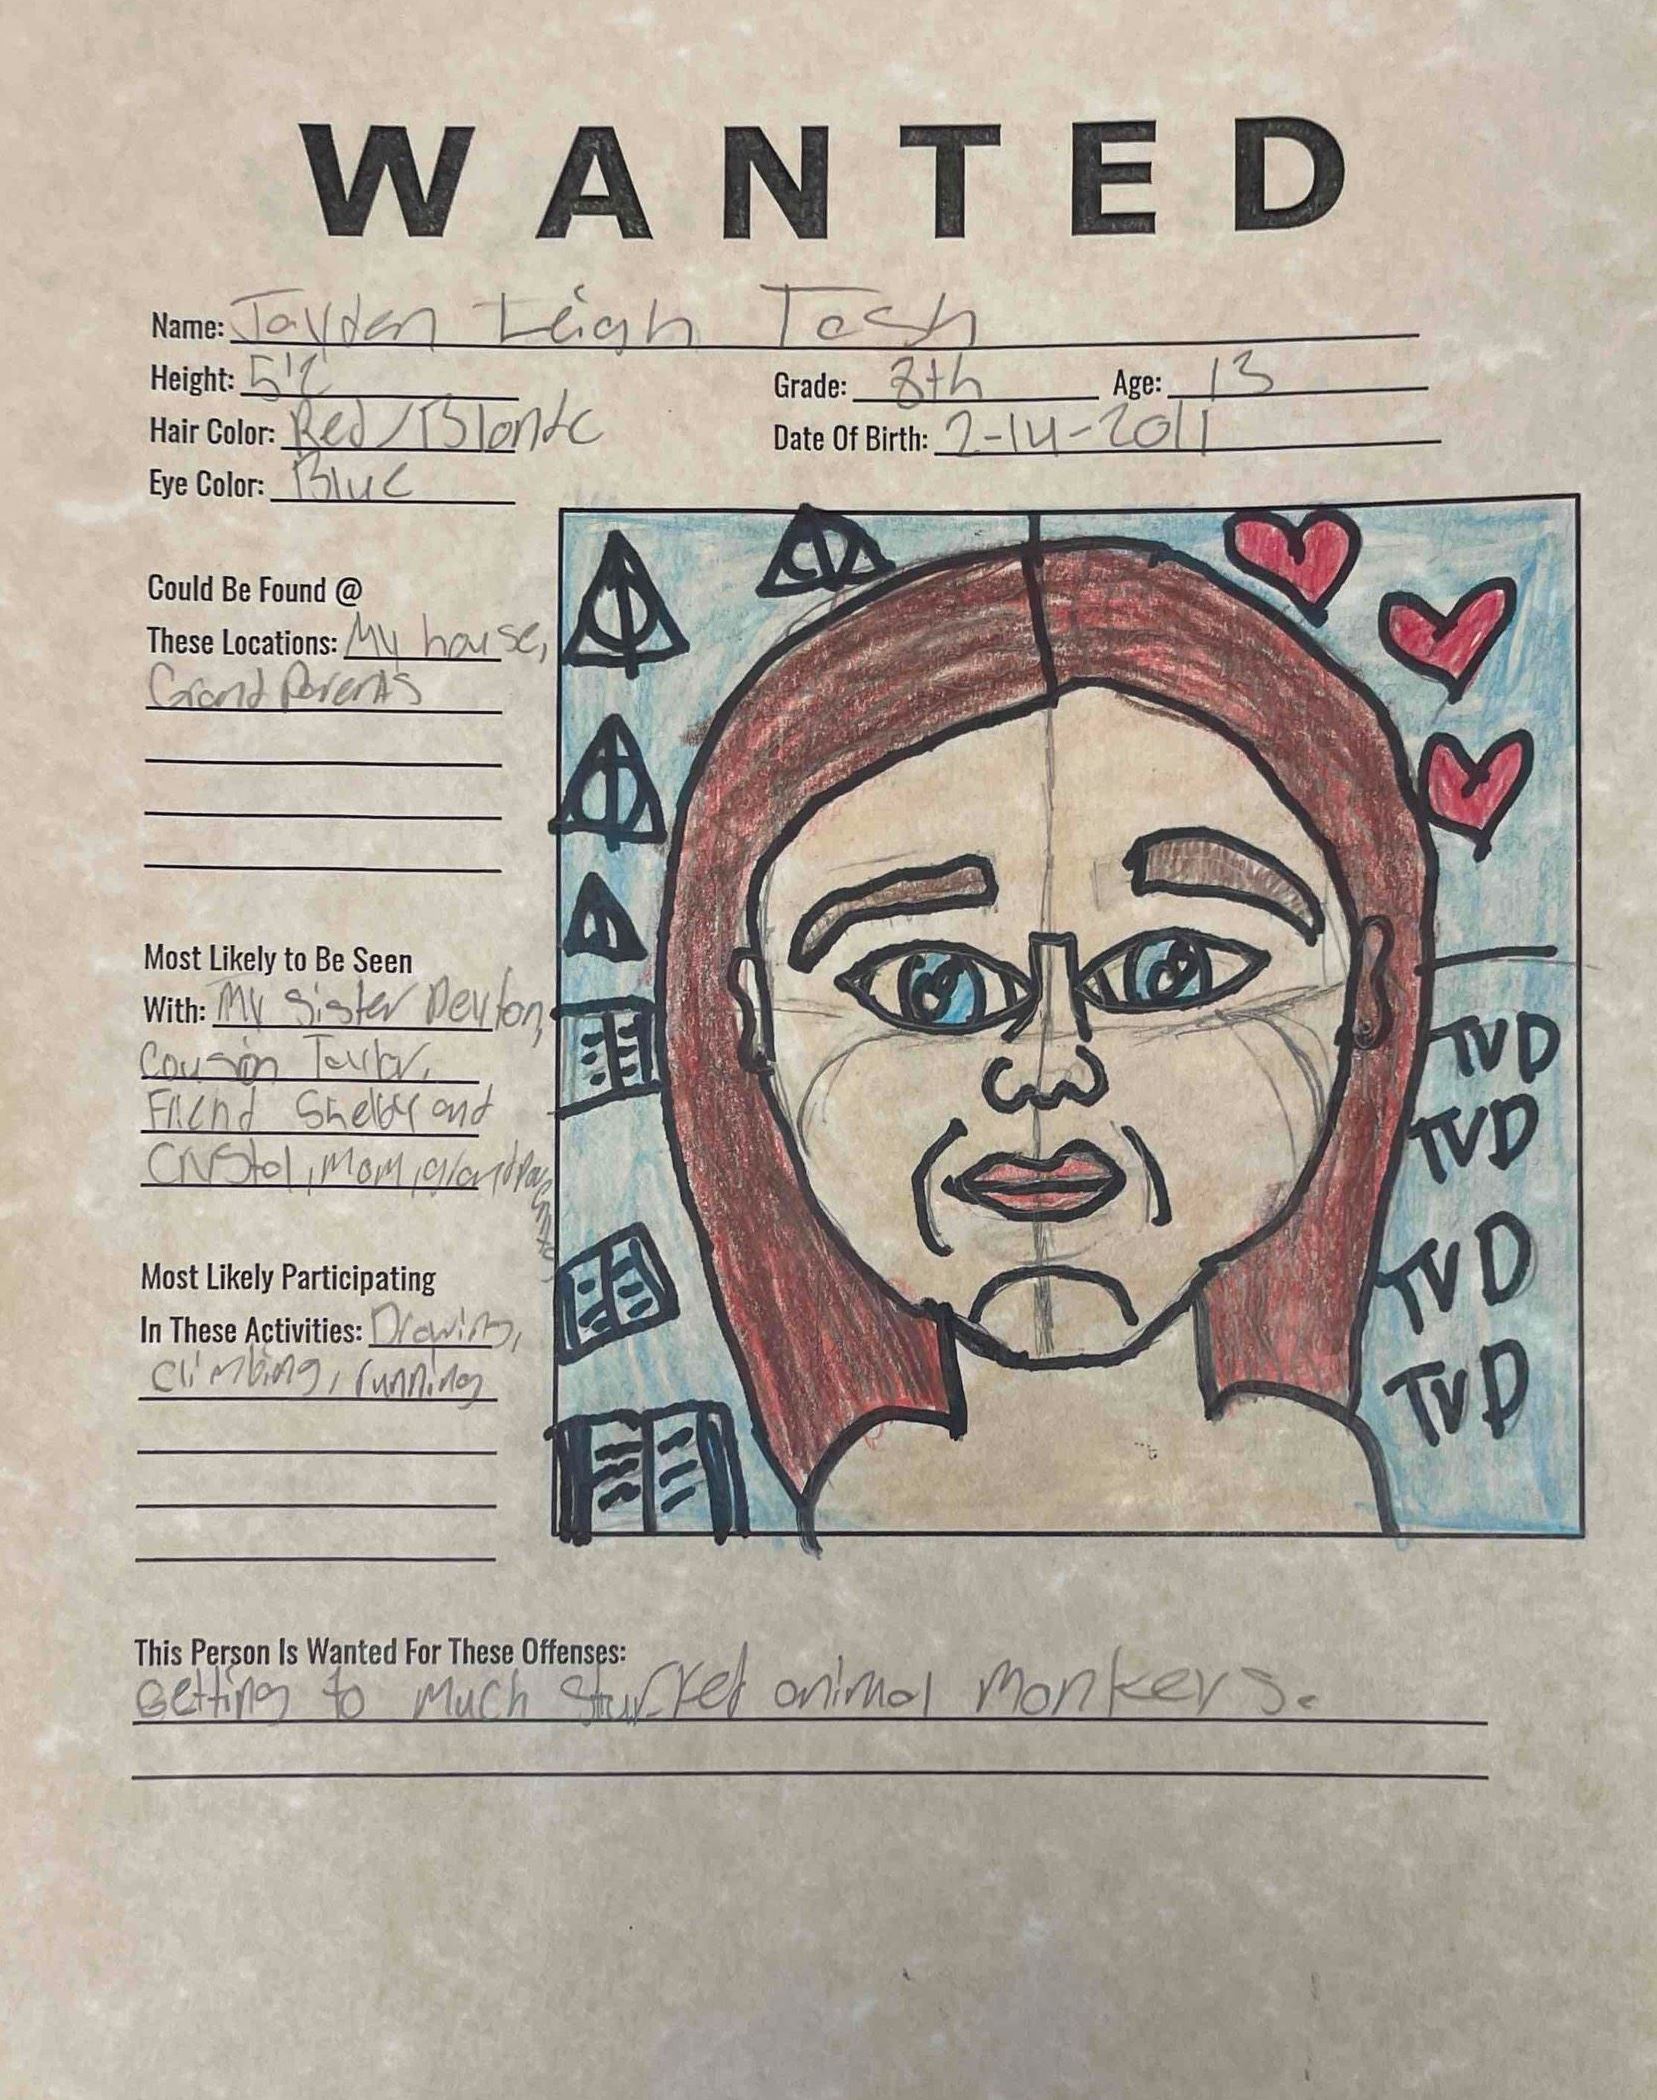 WANTED
Name: Jayden Leigh Tesh
Height: 5'2 Grade: 8th Age: 13
Hair Color: Red/Blonde Date Of Birth: 2-14-2011
Eye Color: Blue
Could Be Found @
These Locations: My house,
Grand Parents
Most Likely to Be Seen
With: My Sister Peyton,
Cousin Taylor,
Friend Shelby and
Crystal, Mom, grandparents
Most Likely Participating
In These Activities: Drawing,
climbing, running
TVD
TVD
TVD
TVD
This Person Is Wanted For These Offenses:
Getting to much stuffed animal monkeys.